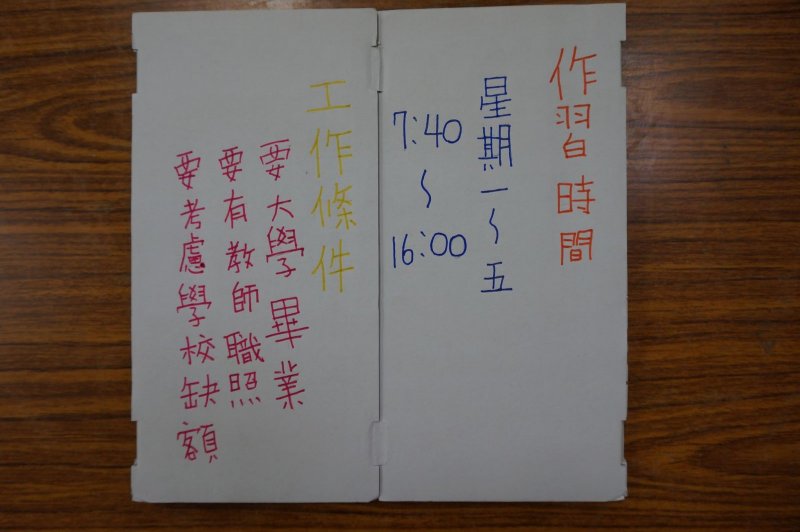 作習時間
星期一~五
7:40
~
16:00
工作條件
要大學畢業
要有教師職照
要考慮學校缺額